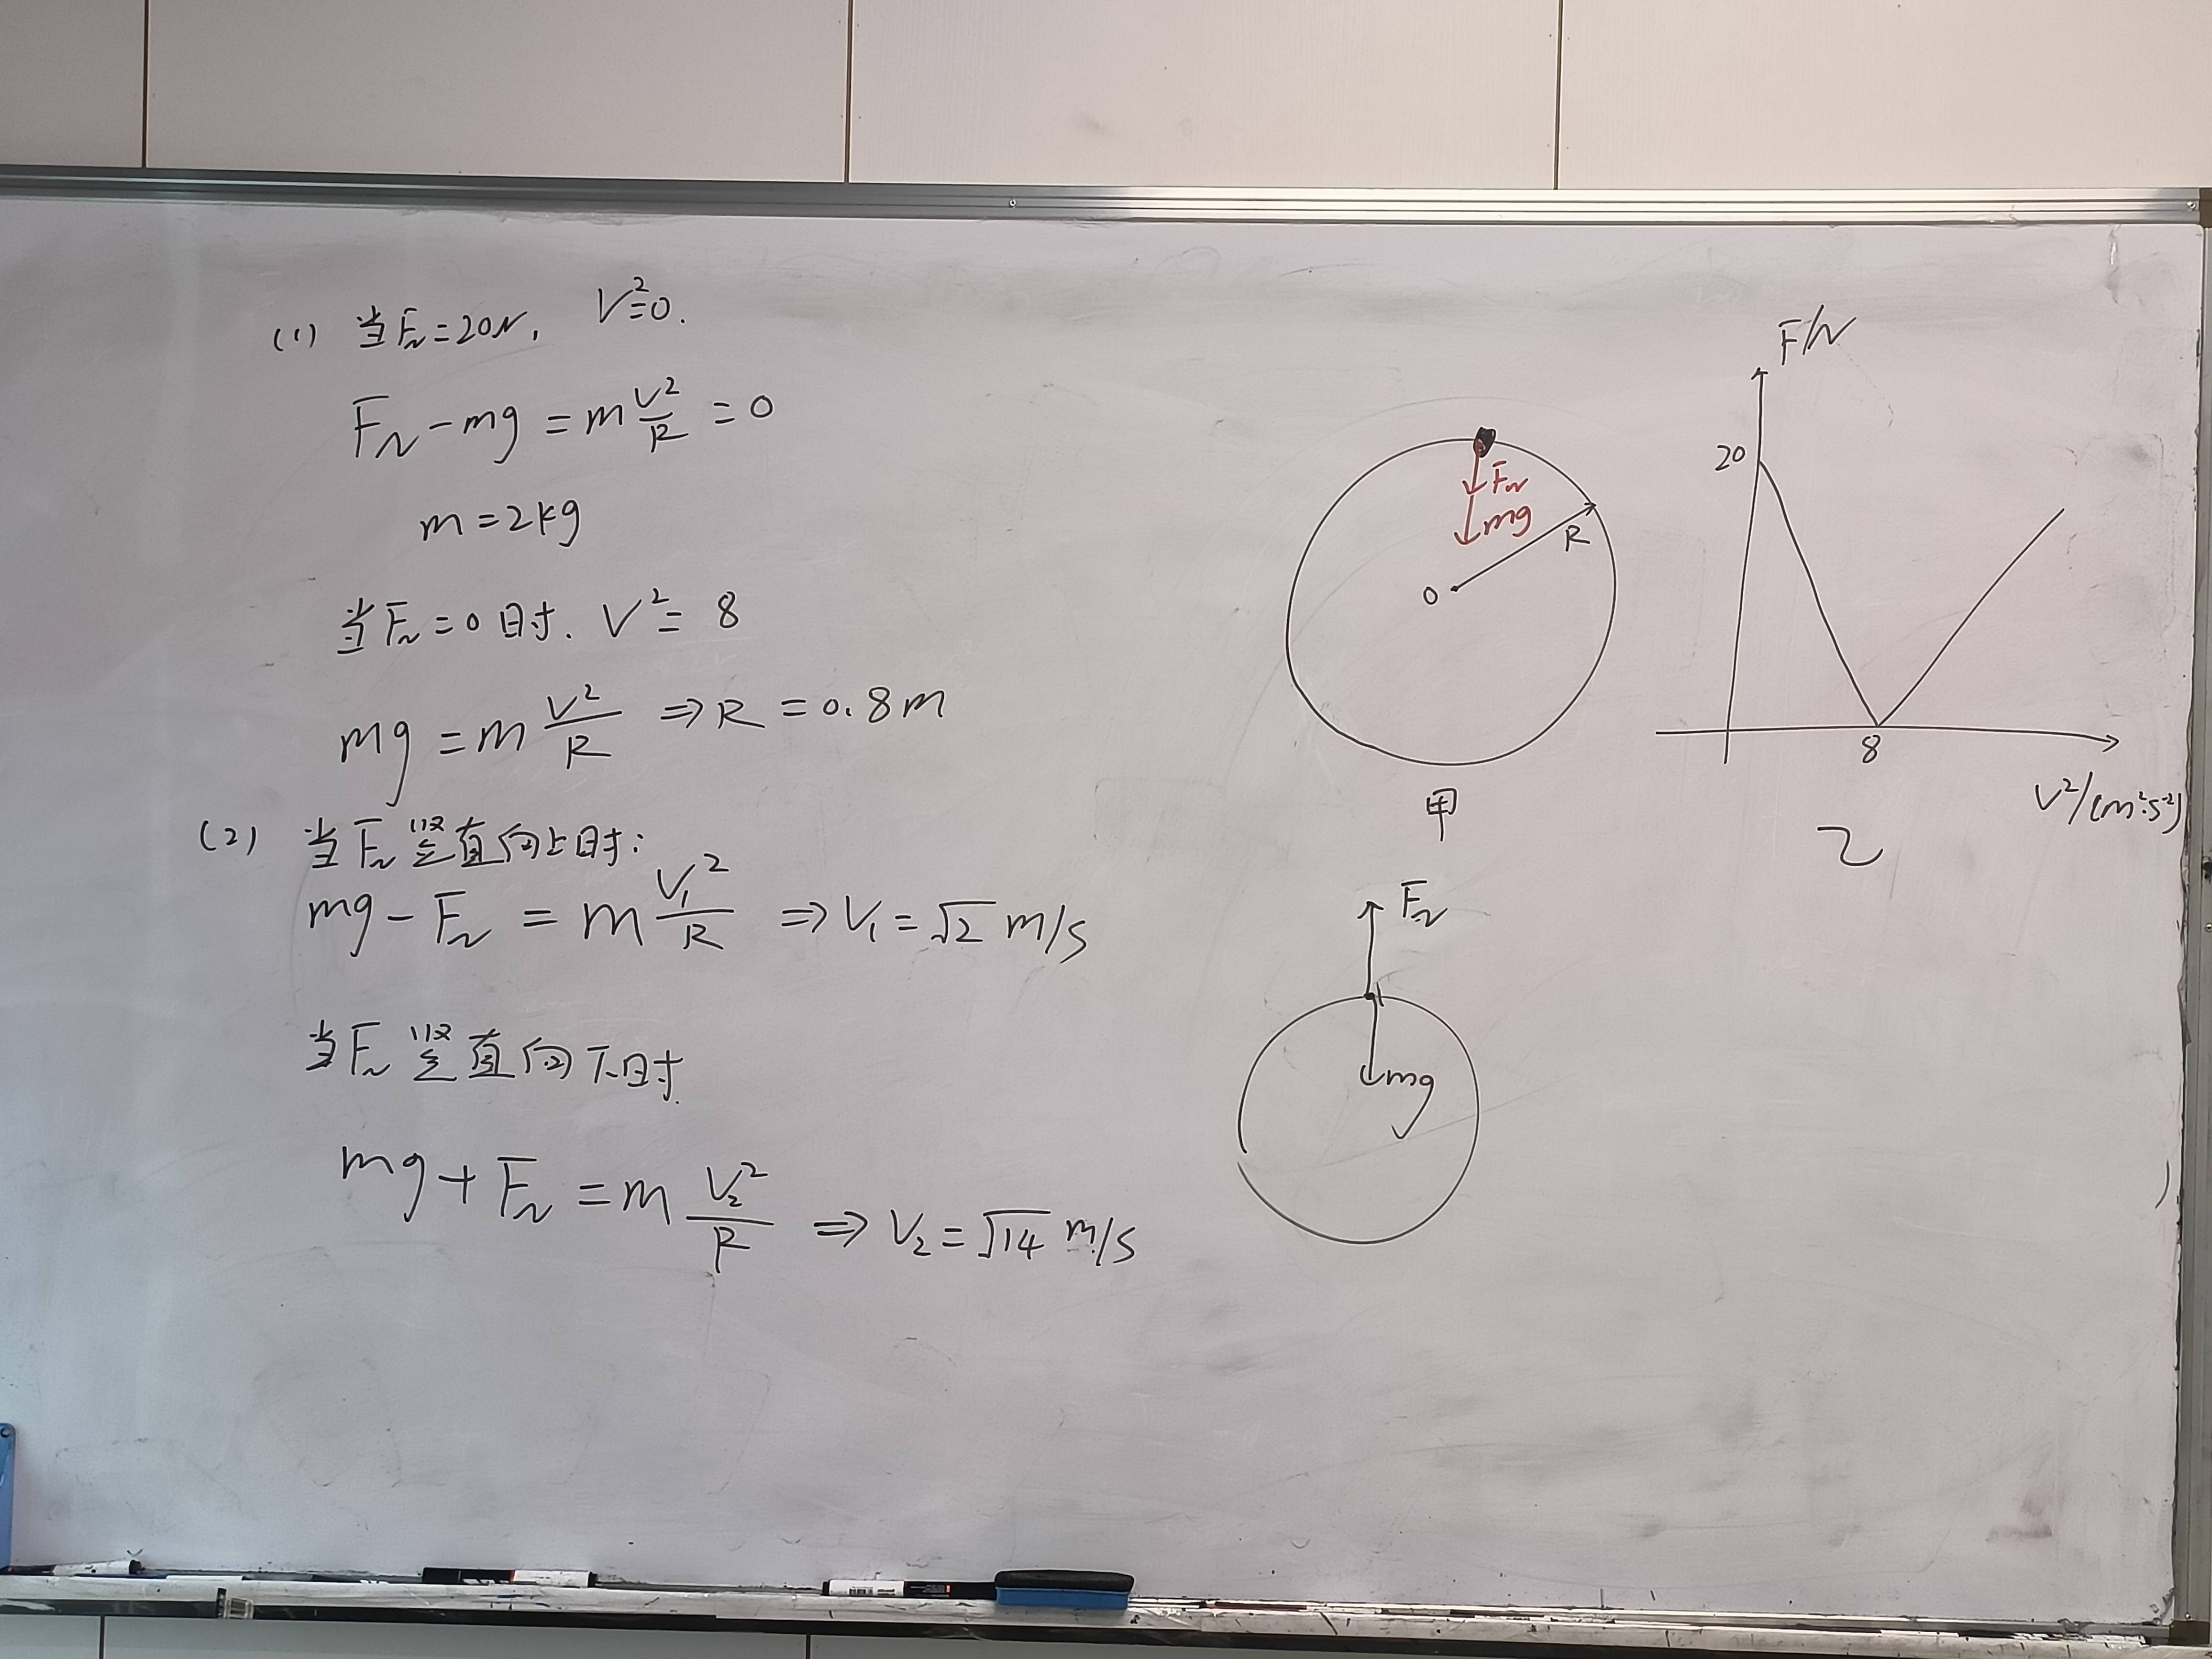 (1) 当F_N=20N, V²=0.
F_N-mg=m\frac{V²}{R}=0
m=2kg
当F_N=0时. V²=8
mg=m\frac{V²}{R} ⇒R=0.8m
(2) 当F_N竖直向上时:
mg-F_N=m\frac{V₁²}{R} ⇒V₁=√2 m/s
当F_N竖直向下时.
mg+F_N=m\frac{V₂²}{R} ⇒V₂=√14 m/s
F_N
mg
R
O
甲
F/N
20
8
V²/(m²·s⁻²)
乙
F_N
mg